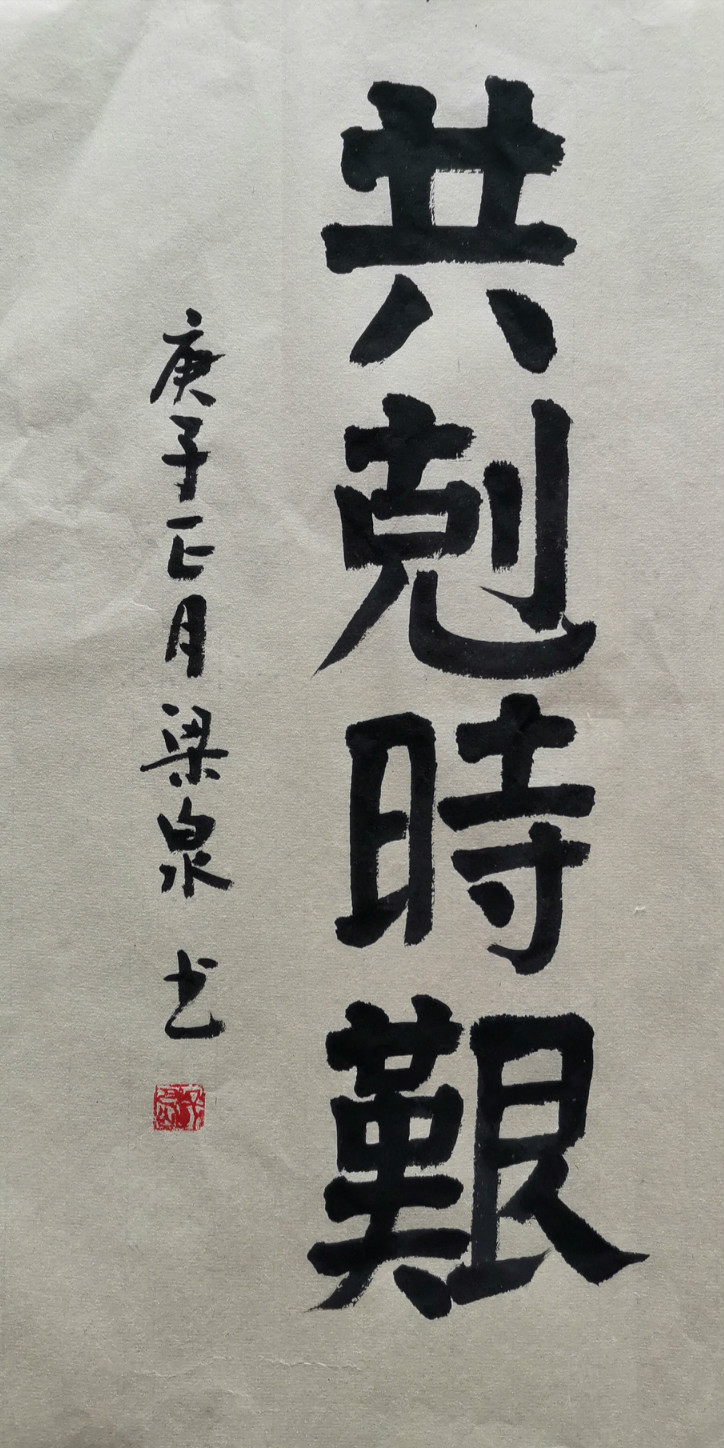 共剋時艱
庚子正月梁泉书